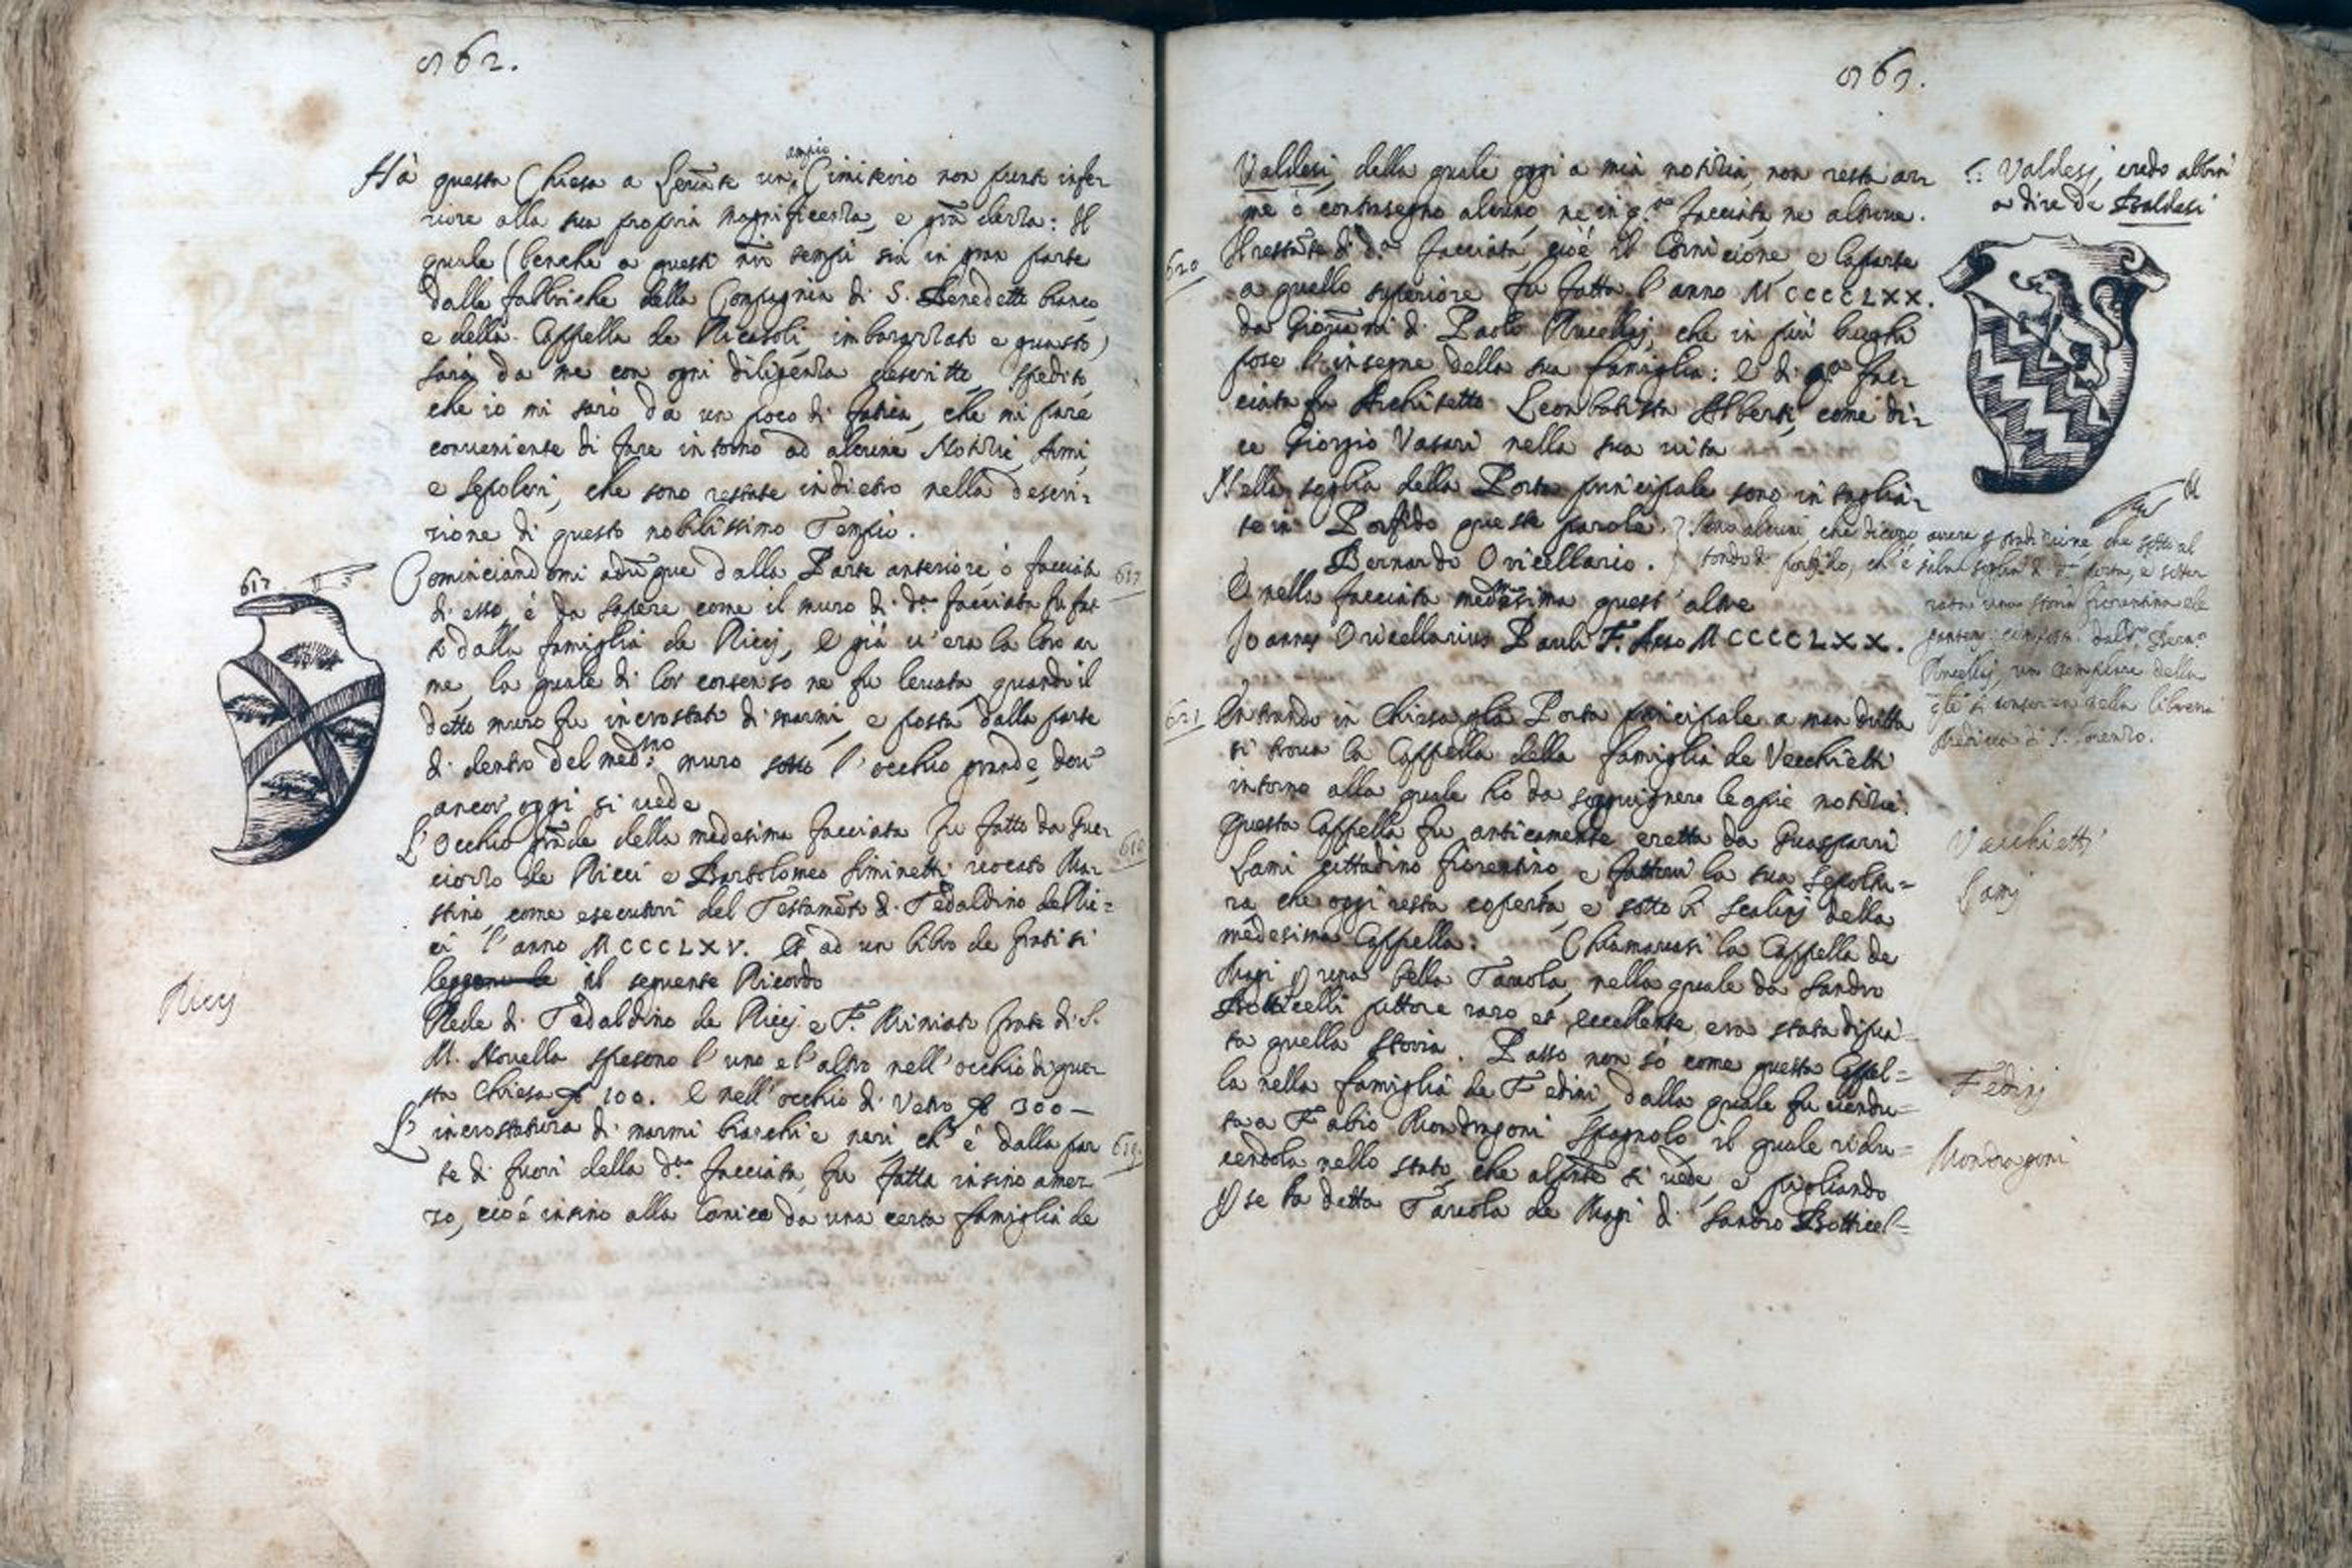 562.
Hà questa Chiesa a Levãte un ampio Cimiterio non punto infe-
riore alla sua propria magnificenza, e grãdezza: Il
quale (benche a questi nrĩ tempi sia in gran parte
dalle fabbriche della Compagnia di S. Benedetto bianco,
e della Cappella de Ricasoli imbarazzato e guasto)
sarà da me con ogni diligenza descritto, spedito,
che io mi sarò da un poco di fatica, che mi pare
conveniente di fare intorno ad alcune Notizie, Armi,
e Sepolcri, che sono restate indietro nella descri-
zione di questo nobilissimo Tempio.
617
Cominciandomi adũque dalla Parte anteriore ò facciata
617
di esso, è da sapere come il muro di d.ª facciata fu fat-
to dalla famiglia de Ricci, e già v'era la loro ar
me, la quale di lor consenso ne fu levata quando il
detto muro fu incrostato di marmi, e posta dalla parte
di dentro del med.mo muro sotto l'occhio grande, dove
ancor oggi si vede
L'Occhio grãde della medesima facciata fu fatto da Guc-
618
ciozzo de Ricci e Bartolomeo Siminetti vocato Ma-
stino, come esecutori del Testamẽto di Tedaldino de Ric=
ci l'anno MCCCLXV. Et ad un libro de frati si
leggono le il seguente Ricordo
Ricci
Rede di Tedaldino de Ricci e F. Miniato frate di S.
M. Novella spesono l'uno e l'altro nell'occhio di que-
sta Chiesa 100. E nell'occhio di Vetro 300 —
L'incrostatura di marmi bianchi e neri, ch'è dalla par
619.
te di fuori della d.ª facciata, fu fatta insino a mez-
zo, cioè insino alla Cornice da una certa famiglia de
563.
Valdesi, della quale oggi a mia notizia, non resta ar-
me ò contrasegno alcuno, ne in q.sta facciata, ne altrove.
Valdesi, credo abbia
a dire de Baldesi
620
Il restãte di d.ª facciata, cioè il Cornicione, e la parte
a quello superiore fu fatta l'anno MCCCCLXX.
da Giovãni di Paolo Rucellaj, che in più luoghi
pose l'insegne della sua famiglia: E di q.ª fac-
ciata fu Architetto Leonbatista Alberti, come di-
ce Giorgio Vasari nella sua vita
Nella soglia della Porta principale sono intaglia-
te in Porfido queste parole.
Bernardo Oricellario.
Sono alcuni, che dicono avere p tradizione, che sotto al
tondo di porfido, ch'è sulla soglia di d.ª porta, e sotter
rata una storia fiorentina ele
gantem. composta dal d.º Bern.º
Rucellaj, un esemplare della
qle si conserva nella libreria
Medicea di S. Lorenzo.
E nella facciata medesima quest'altre
Joannes Oricellarius Pauli F. Anno MCCCCLXX.
621
Entrando in Chiesa p la Porta principale a man dritta
si trova la Cappella della famiglia de Vecchietti
intorno alla quale hò da soggiugnere le appiè notizie.
Questa Cappella fu anticamente eretta da Guasparri
Vecchietti
Lami cittadino fiorentino, e fattavi la sua Sepoltu=
Lami
ra che oggi resta coperta, e sotto li Scalini della
medesima Cappella: Chiamavasi la Cappella de
Magi p una bella Tavola, nella quale da Sandro
Botticelli pittore raro et eccellente era stata dipin=
ta quella storia. Passò non sò come questa Cappel=
la nella famiglia de Fedini, dalla quale fu vendu=
Fedini
ta a Fabio Mondragoni Spagnolo il quale ridu=
Mondragoni
cendola nello stato, che al pñte si vede, e pigliando
p se la detta Tavola de Magi di Sandro Botticel=